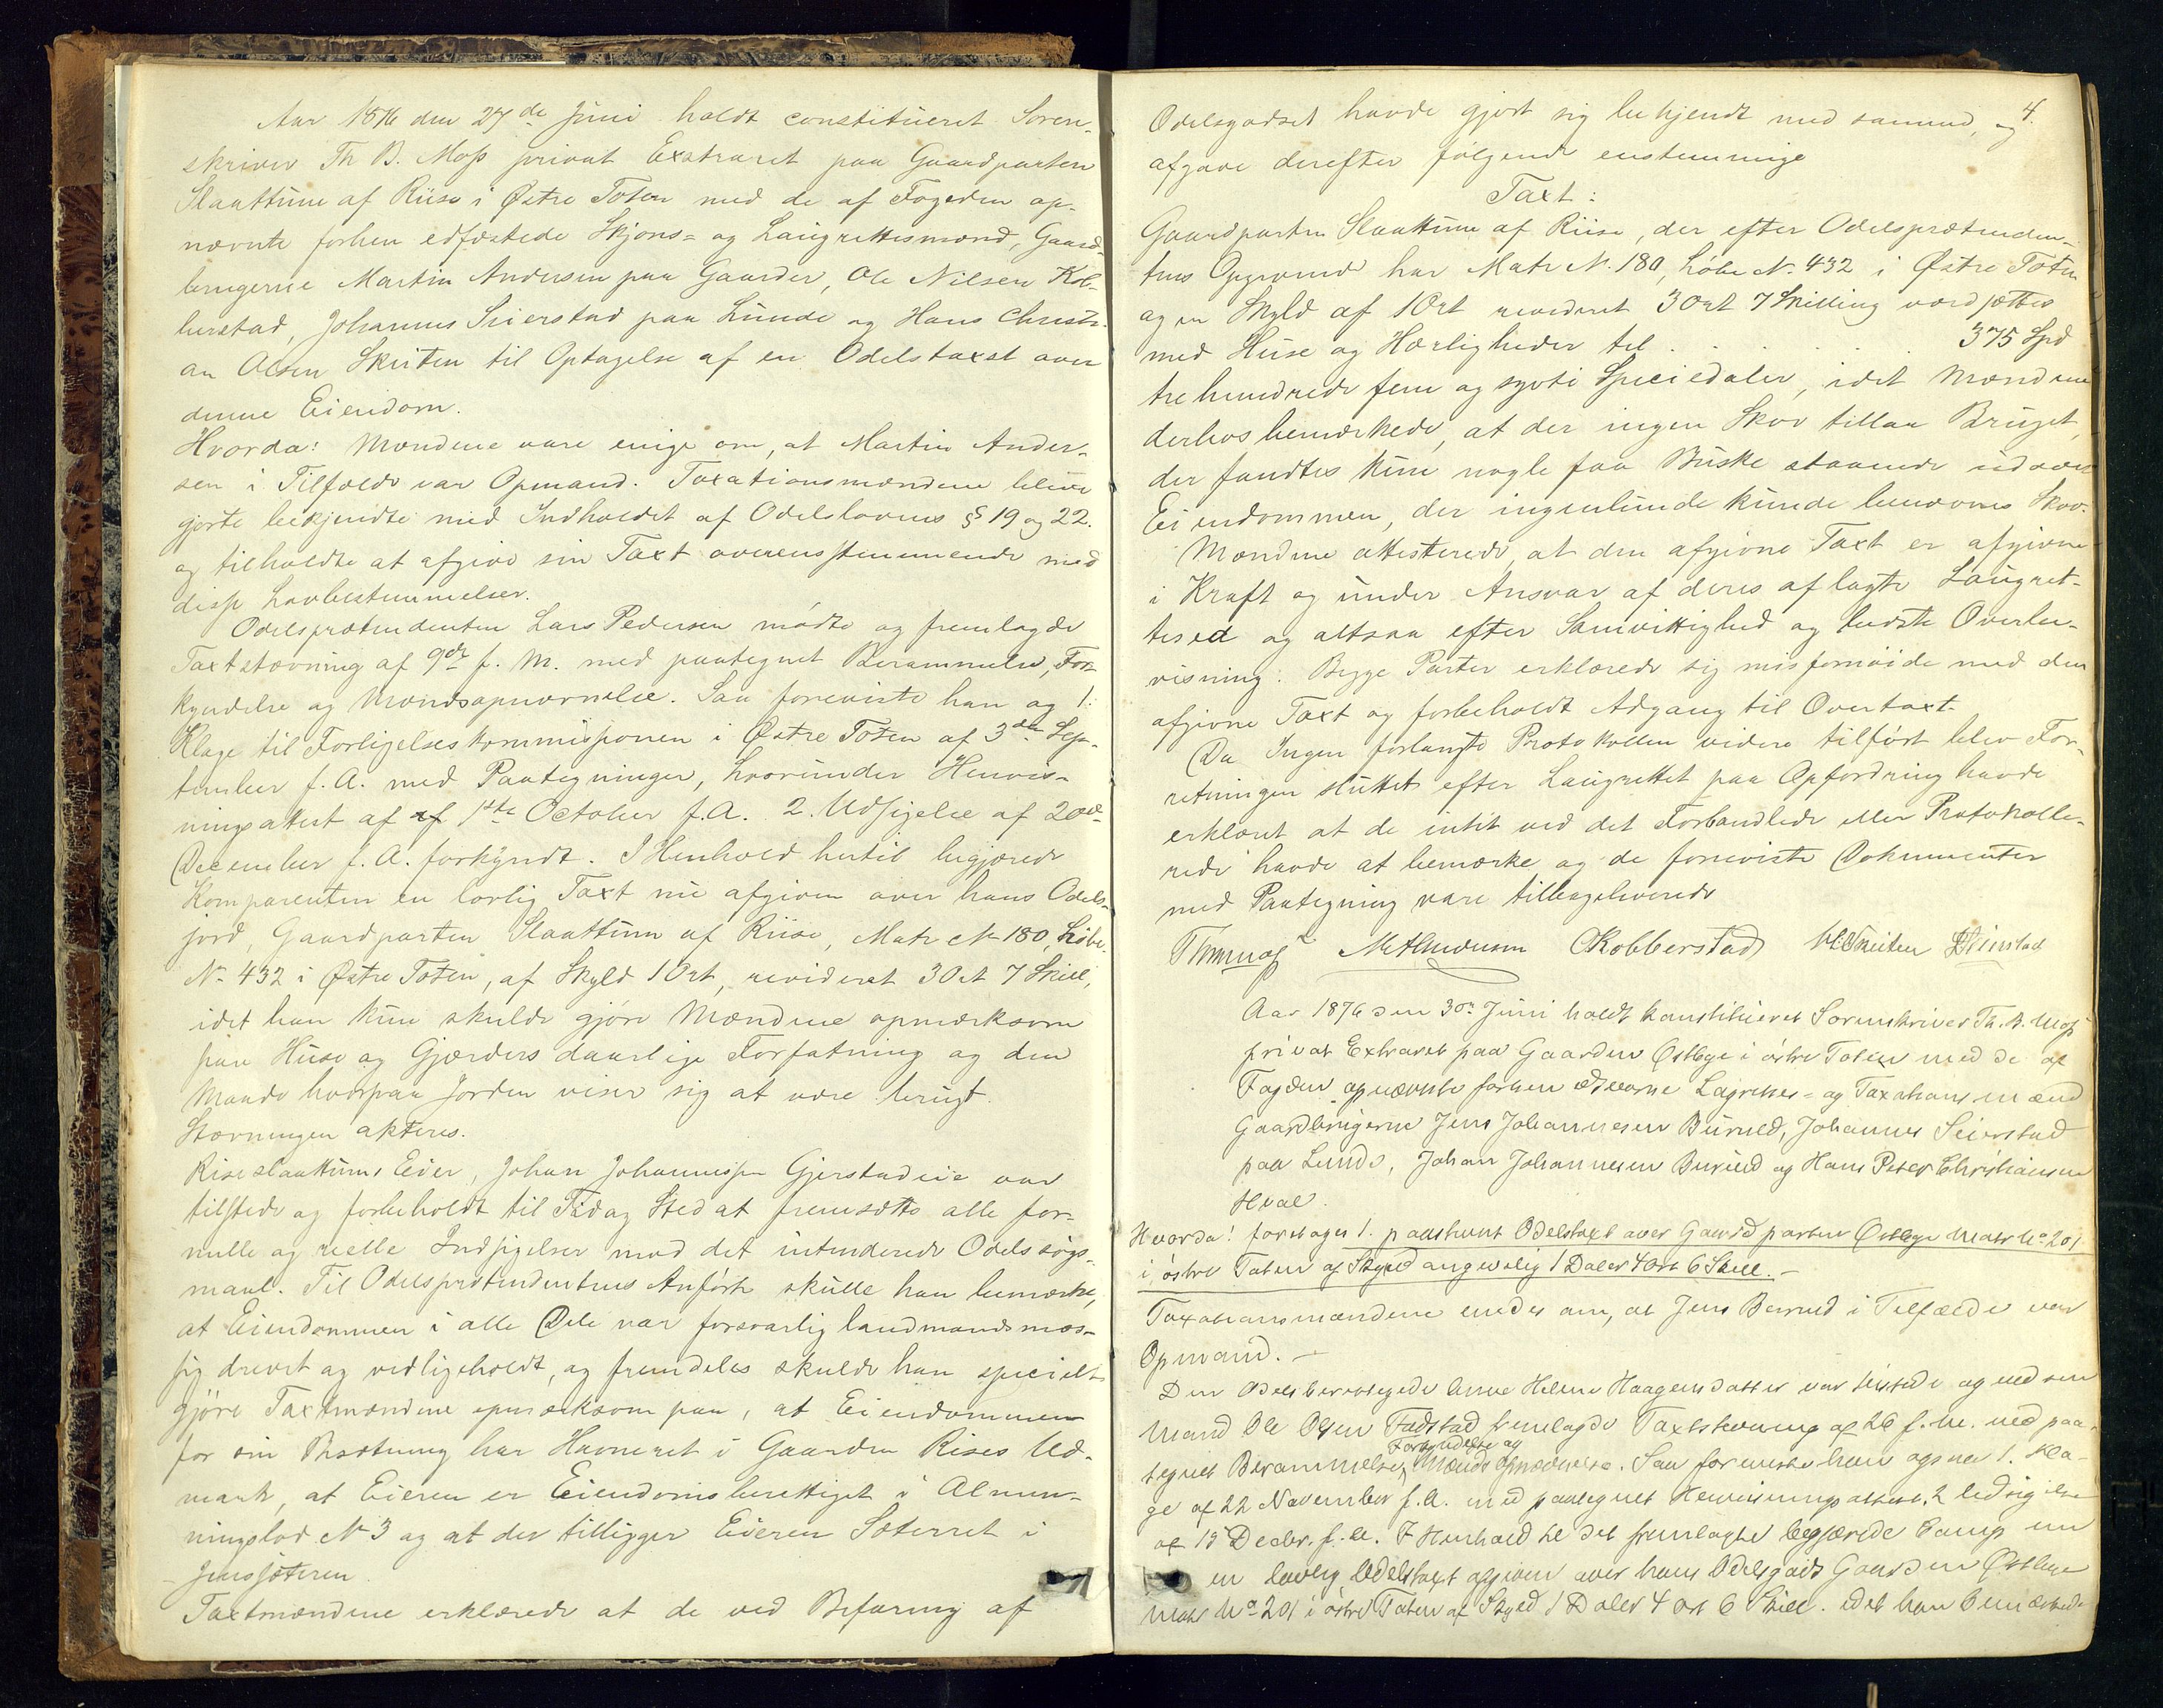 Aar 1876 den 27de Juni holdt constitueret Soren-
skriver Th B. Moss privat Extraret paa Gaardparten
Slaattum af Riise i Østre Toten med de af Fogeden op-
nævnte forhen edfæstede Skjøns- og Laugrettesmænd, Gaard-
brugerne Martin Andersen paa Gaarder, Ole Nilsen Kol-
berstad, Johannes Seierstad paa Lunde og Hans Christi-
an Olsen Skiten til Optagelse af en Odelstaxt over
denne Eiendom.
Hvorda: Mændene vare enige om, at Martin Ander-
sen i Tilfælde var Opmand. Taxationsmændene bleve
gjorte bekjendte med Indholdet af Odelslovens § 19 og 22.
og tilholdte at afgive sin Taxt overensstemmende med
disse Lovbestemmelser.
Odelsprætendenten Lars Pedersen mødte og fremlagde
Taxtstævning af 9de f. M. med paategnet Berammelse, For-
kyndelse og Mændsopnævnelse. Saa foreviste han og 1:
Klage til Forligelseskommissionen i Østre Toten af 3die Sep-
tember f. A. med Paategninger, hvorunder Henvis-
ningsattest af 1ste October f. A. 2. Udsigelse af 20de
December f. A. forkyndt. I Henhold hertil begjærede
Komparenten en lovlig Taxt nu afgiven over hans Odels-
jord, Gaardparten Slaattum af Riise, Matr No 180, Løbe
No 432 i Østre Toten, af Skyld 1 Ort, revideret 3 Ort 7 Skill,
idet han kun skulde gjøre Mændene opmærksom
paa Huse og Gjærders daarlige Forfatning og den
Maade hvorpaa Jorden viser sig at være brugt.
Stævningen akteres.
Riseslaattums Eier, Johan Johannessen Gjerstadeie var
tilstede og forbeholdt til Tid og Sted at fremsætte alle for-
melle og reelle Indsigelser mod det intenderede Odelssøgs-
maal. Til Odelsprætendentens Anførte skulde han bemærke,
at Eiendommen i alle Dele var forsvarlig landmandsmæs-
sig drevet og vedligeholdt, og fremdeles skulde han specielt
gjøre Taxtmændene opmærksom paa, at Eiendommen
for sin Besætning har Havneret i Gaarden Rises Ud-
mark, at Eieren er Eiendomsberettiget i Almen-
ningslod No 3 og at der tilligger Eieren Sæterret i
Jenssæteren.
Taxtmændene erklærede at de ved Befaring af
4.
Odelsgodset havde gjort sig bekjendt med samme, og
afgave derefter følgende enstemmige
Taxt:
Gaardparten Slaattum af Riise, der efter Odelsprætenden-
tens Opgivende har Matr No. 180, Løbe No. 432 i Østre Toten
og en Skyld af 1 Ort revideret 3 Ort 7 Skilling værdsættes
med Huse og Herligheder til . . . . . . 375 Spd
tre hundrede fem og sytti Speciedaler, idet Mændene
derhos bemærkede, at der ingen Skov tillaa Bruget,
der fandtes kun nogle faa Buske staaende udover
Eiendommen, der ingenlunde kunde benævnes Skov.
Mændene attesterede, at den afgivne Taxt er afgivne
i Kraft og under Ansvar af deres aflagte Laugret-
tesed og altsaa efter Samvittighed og bedste Overbe-
visning. Begge Parter erklærede sig misfornøiede med den
afgivne Taxt og forbeholdt Adgang til Overtaxt.
Da Ingen forlangte Protokollen videre tilført blev For-
retningen sluttet efter Laugrettet paa Opfordring havde
erklæret at de intet ved det Forhandlede eller Protokolle-
rede havde at bemærke og de foreviste Dokumenter
med Paategning vare tilbageleverede
ThMoss MAndersen OKobberstad HCSkiten
Aar 1876 den 30te Juni holdt konstitueret Sorenskriver Th. B. Moss
privat Extraret paa Gaarden Østbye i østre Toten med de af
Fogden opnævnte forhen edsvorne Lagrettes- og Taxationsmænd
Gaardbrugerne Jens Johannesen Burud, Johannes Seierstad
paa Lunde, Johan Johannesen Burud og Hans Peter Christiansen
Hval.
Hvorda! foretages 1. paastævnt Odelstaxt over Gaardparten Østbye Matr No 201
i østre Toten af Skyld angivelig 1 Daler 4 Ort 6 Skill. –
Taxationsmændene enedes om, at Jens Burud i Tilfælde var
Opmand. –
Den Odelsberettigede Anne Helene Haagensdatter var tilstede og ved sin
Mand Ole Olsen Fadstad fremlagde Taxtstævning af 26 f. M. med paa-
Forkyndelse og
tegnet Berammelse, Mændsopnævnelse. Saa foreviste han ogsaa 1. Kla-
ge af 22 November f. A. med paategnet Henvisningsattest. 2 Udsigelse
af 13 Decbr. f. A. I Henhold til det fremlagte begjærede Comp nu
en lovlig Odelstaxt afgiven over hans Odelsgods Gaarden Østbye
Matr No 201 i østre Toten af Skyld 1 Daler 4 Ort 6 Skill. idet han bemærkede